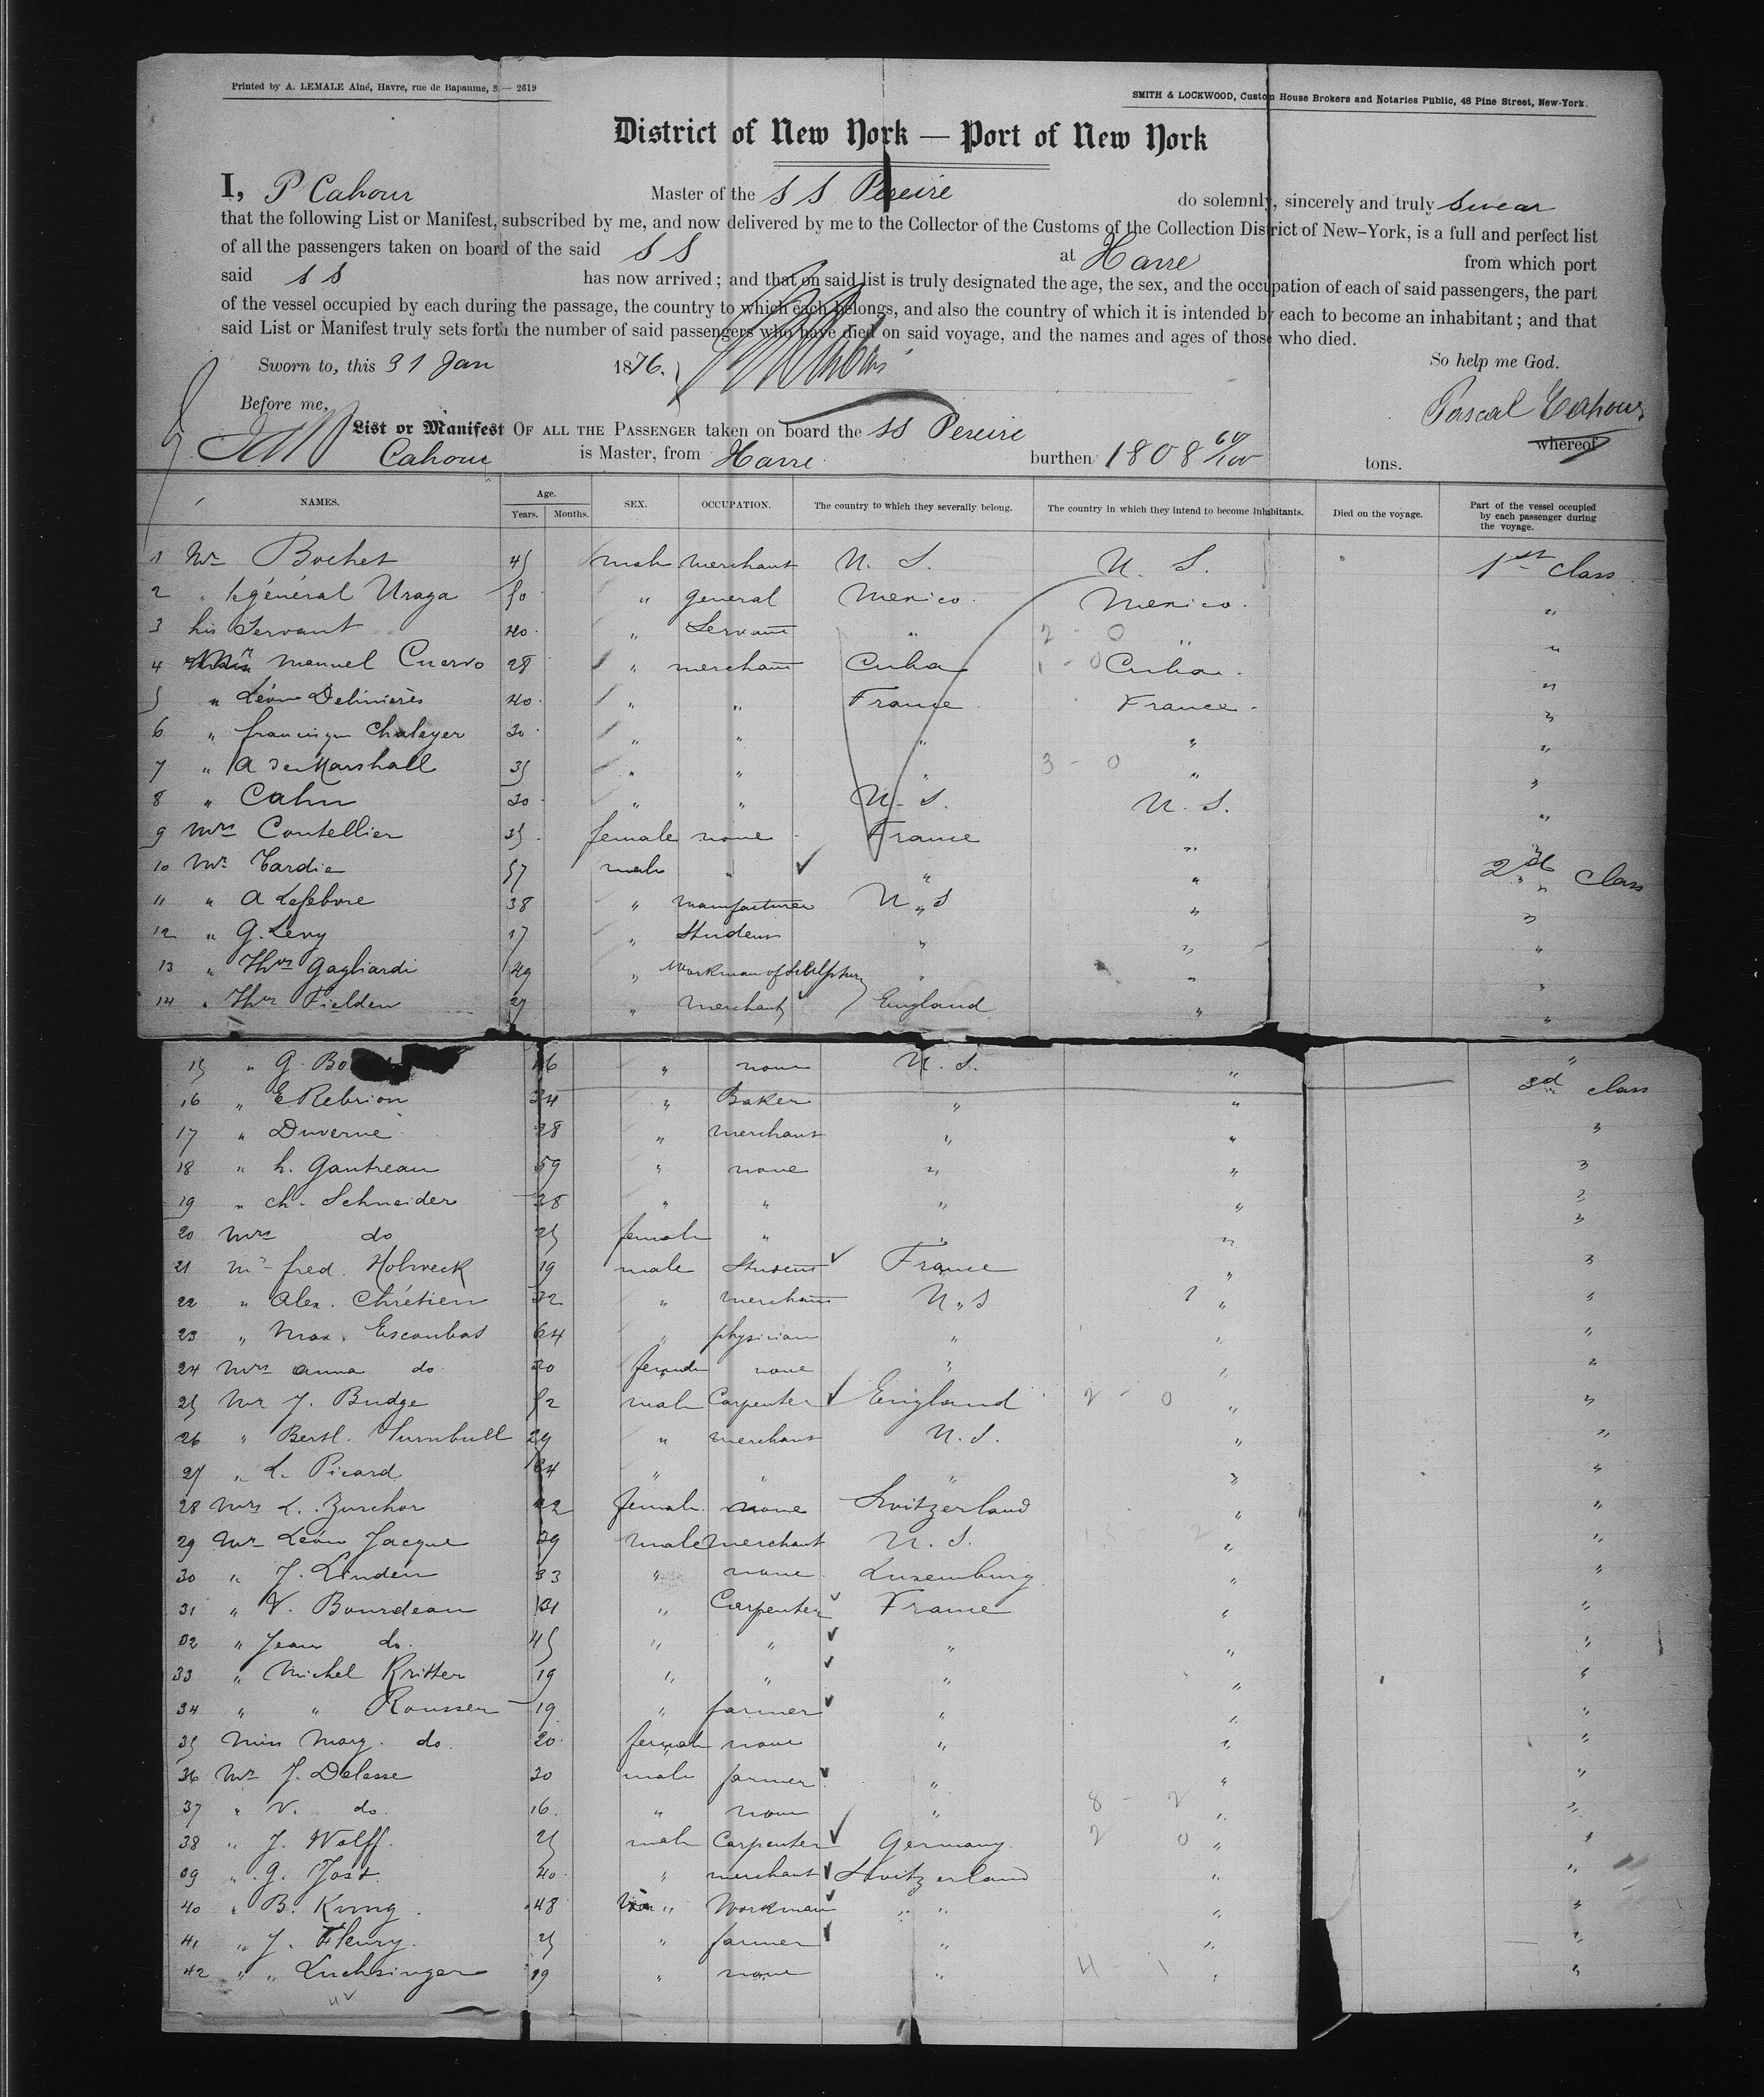 Printed by A. LEMALE Aîné, Havre, rue de Bapaume, 3 — 2619
SMITH & LOCKWOOD, Custom House Brokers and Notaries Public, 48 Pine Street, New-York.
District of New York — Port of New York
I, P Cahour Master of the S S Pereire do solemnly, sincerely and truly swear
that the following List or Manifest, subscribed by me, and now delivered by me to the Collector of the Customs of the Collection District of New-York, is a full and perfect list
of all the passengers taken on board of the said S S at Havre from which port
said S S has now arrived; and that on said list is truly designated the age, the sex, and the occupation of each of said passengers, the part
of the vessel occupied by each during the passage, the country to which each belongs, and also the country of which it is intended by each to become an inhabitant; and that
said List or Manifest truly sets forth the number of said passengers who have died on said voyage, and the names and ages of those who died.
Sworn to, this 31 Jan 1876. So help me God.
Before me, Pascal Cahour
List or Manifest OF ALL THE PASSENGER taken on board the SS Pereire whereof
Cahour is Master, from Havre burthen 1808 60/100 tons.
NAMES. Age. Years. Months. SEX. OCCUPATION. The country to which they severally belong. The country in which they intend to become inhabitants. Died on the voyage. Part of the vessel occupied by each passenger during the voyage.
1 Mr Bochet 45 male merchant U. S. U. S. 1st class
2 " le général Uraga 50 " general Mexico. Mexico. "
3 his Servant 40 " Servant " 2 - 0 " "
4 Mr Manuel Cuervo 28 " merchant Cuba 1 - 0 Cuba "
5 " Léon Delinières 40 " " France France "
6 " francisque Chaleyer 30 " " " " "
7 " A de Marshall 35 " " " 3 - 0 " "
8 " Cahn 30 " " U. S. U. S. "
9 Mrs Contellier 35 female none France " "
10 Mr Tardie 57 male " " " 2d class
11 " A Lefebvre 38 " manufacturer U. S " "
12 " G. Levy 17 " Student " " "
13 " Thos Gagliardi 49 " Workman of " " "
14 " Thos Fielden 27 " Merchant England " "
15 " G. Bo 16 " none U. S. " "
16 " E. Rebrion 34 " Baker " " 3d class
17 " Duverne 28 " merchant " " "
18 " h. Gautreau 59 " none " " "
19 " ch. Schneider 38 " " " " "
20 Mrs do 25 female " " " "
21 Mr fred. Holweck 19 male Student France " "
22 " Alex. Chrétien 32 " merchant U. S " "
23 " Max. Escoubas 64 " physician " " "
24 Mrs anna do 30 female none " " "
25 Mr J. Budge 52 male Carpenter England 2 - 0 " "
26 " Bertl. Turnbull 29 " merchant U. S. " "
27 " L. Picard 24 " " " " "
28 Mrs L. Zurchor 42 female none Switzerland " "
29 Mr Léon Jacque 39 male merchant U. S. " "
30 " J. Linden 33 " none Luxemburg " "
31 " V. Bourdeau 31 " Carpenter France " "
32 " Jean do. 45 " " " " "
33 " Michel Kritter 19 " " " " "
34 " " Rousser 19 " farmer " " "
35 Miss Marg. do. 20 female none " " "
36 Mr J. Delesse 30 male farmer " " "
37 " V. do. 16. " none " 8 - 2 " "
38 " J. Wolff. 25 male Carpenter Germany 2 0 " "
39 " G. Jost. 40 " merchant Switzerland " "
40 " B. Kung. 48 " Workman " " "
41 " J. Fleury. 25 " farmer " " "
42 " " Luchsinger 19 " none " 4 - 1 " "